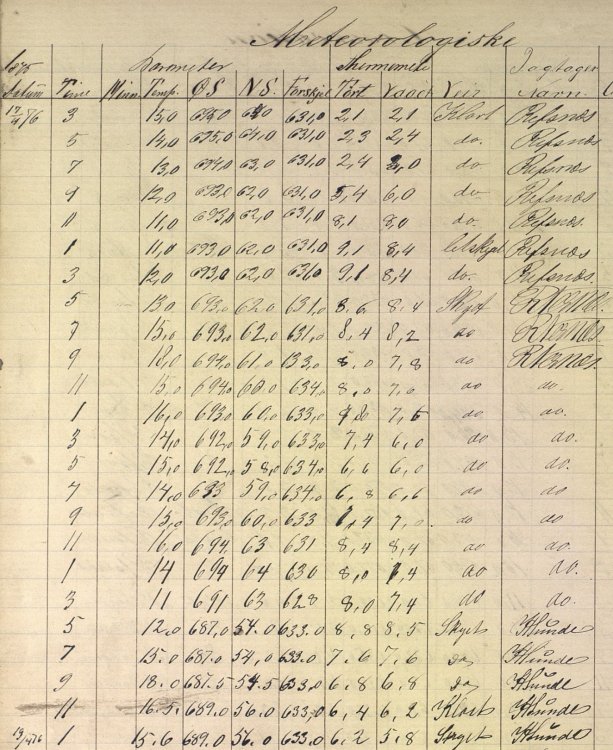 Meteorologiske
1875 Barometer Thermometer Iagtager
Datum Time Minu Temp. Ø.S N.S. Forskjel Tört Vaadt Veir Navn.
3 15,0 695,0 64,0 631,0 2,1 2,1 Klart Refsnæs
5 14,0 695,0 64,0 631,0 2,3 2,4 do. Refsnæs
7 13,0 694,0 63,0 631,0 2,4 2,0 do Refsnæs
9 12,0 693,0 62,0 631,0 5,4 6,0 do. Refsnæs
11 11,0 693,0 62,0 631,0 8,1 8,0 do. Refsnæs.
1 11,0 693,0 62,0 631,0 9,1 8,4 Refsnæs
3 12,0 693,0 62,0 631,0 9,1 8,4 do. Refsnæs.
5 13,0 693,0 62,0 631,0 8,6 8,4 Skyet
7 15,0 693,0 62,0 631,0 8,4 8,2 do
9 16,0 694,0 61,0 133,0 8,0 7,8 do
11 15,0 694,0 60,0 634,0 8,0 7,6 do do.
1 16,0 693,0 60,0 633,0 7,6 do do.
3 14,0 692,0 59,0 633,0 7,4 6,0 do do.
5 15,0 692,0 58,0 634,0 6,6 6,0 do do.
7 14,0 693 59,0 634,0 6,8 6,6 do do
9 15,0 693,0 60,0 633 7,0 do do
11 16,0 694 63 631 8,4 8,4 do do.
1 14 694 64 630 8,0 7,4 do do.
3 11 691 63 628 8,0 7,4 do do.
5 12.0 687,0 54.0 633.0 8,8 8,5 Skyet Hünde
7 15.0 687.0 54,0 633.0 7,6 7,6 do Hünde
9 18.0 687.5 54.5 633,0 6,8 6,8 do Hünde
11 16.5 689.0 56.0 633,0 6,4 6,2 Klart Hünde
1 15.6 689.0 56.0 633.0 6,2 5,8 Skyet Hünde